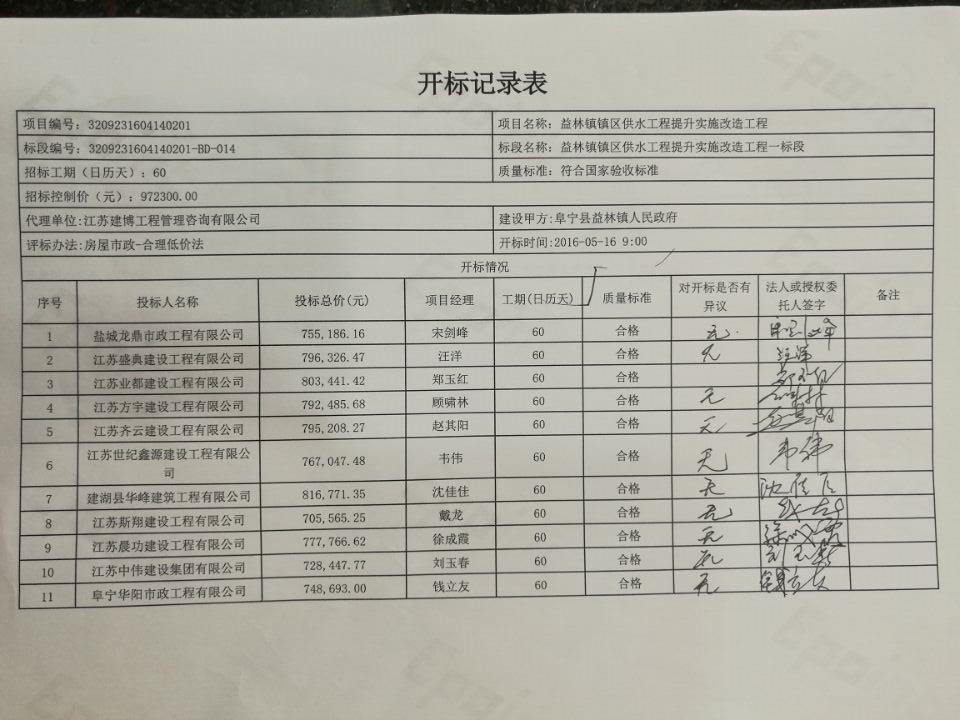 开标记录表
项目编号：3209231604140201 项目名称：益林镇镇区供水工程提升实施改造工程
标段编号：3209231604140201-BD-014 标段名称：益林镇镇区供水工程提升实施改造工程一标段
招标工期（日历天）：60 质量标准：符合国家验收标准
招标控制价（元）：972300.00
代理单位:江苏建博工程管理咨询有限公司 建设甲方:阜宁县益林镇人民政府
评标办法:房屋市政-合理低价法 开标时间:2016-05-16 9:00
开标情况
序号 投标人名称 投标总价(元) 项目经理 工期(日历天) 质量标准 对开标是否有异议 法人或授权委托人签字 备注
1 盐城龙鼎市政工程有限公司 755,186.16 宋剑峰 60 合格 无
2 江苏盛典建设工程有限公司 796,326.47 汪洋 60 合格 无 汪洋
3 江苏业都建设工程有限公司 803,441.42 郑玉红 60 合格
4 江苏方宇建设工程有限公司 792,485.68 顾啸林 60 合格 无
5 江苏齐云建设工程有限公司 795,208.27 赵其阳 60 合格 无 赵其阳
6 江苏世纪鑫源建设工程有限公司 767,047.48 韦伟 60 合格 无 韦伟
7 建湖县华峰建筑工程有限公司 816,771.35 沈佳佳 60 合格 无 沈佳佳
8 江苏斯翔建设工程有限公司 705,565.25 戴龙 60 合格 无
9 江苏晨功建设工程有限公司 777,766.62 徐成霞 60 合格 无 徐成霞
10 江苏中伟建设集团有限公司 728,447.77 刘玉春 60 合格 无 刘玉春
11 阜宁华阳市政工程有限公司 748,693.00 钱立友 60 合格 无 钱立友